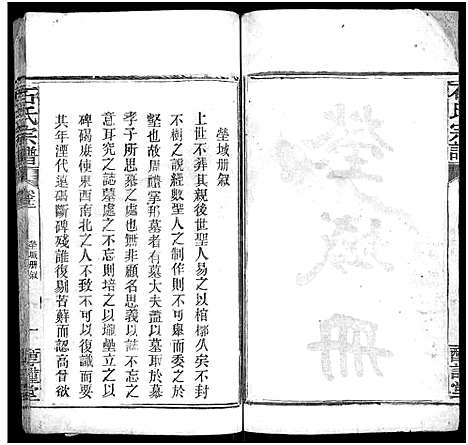 石氏宗譜
塋域冊
塋域冊敘
上世不葬其親後世聖人易之以棺槨久矣不封
不樹之說經數聖人之制作則不可舉而委之於
壑也故周禮掌邦墓者有墓大夫蓋以墓耶於慕
孝子所思慕之處也無非顧名思義以垂不忘之
意耳究之誌墓處之不忘則培之以壠壘立之以
碑碣庶使東西南北之人不致不可以復識而要
其年湮代遠碣斷碑殘誰復剔苔蘚而高曾欲
石氏宗譜
塋域冊敘
一